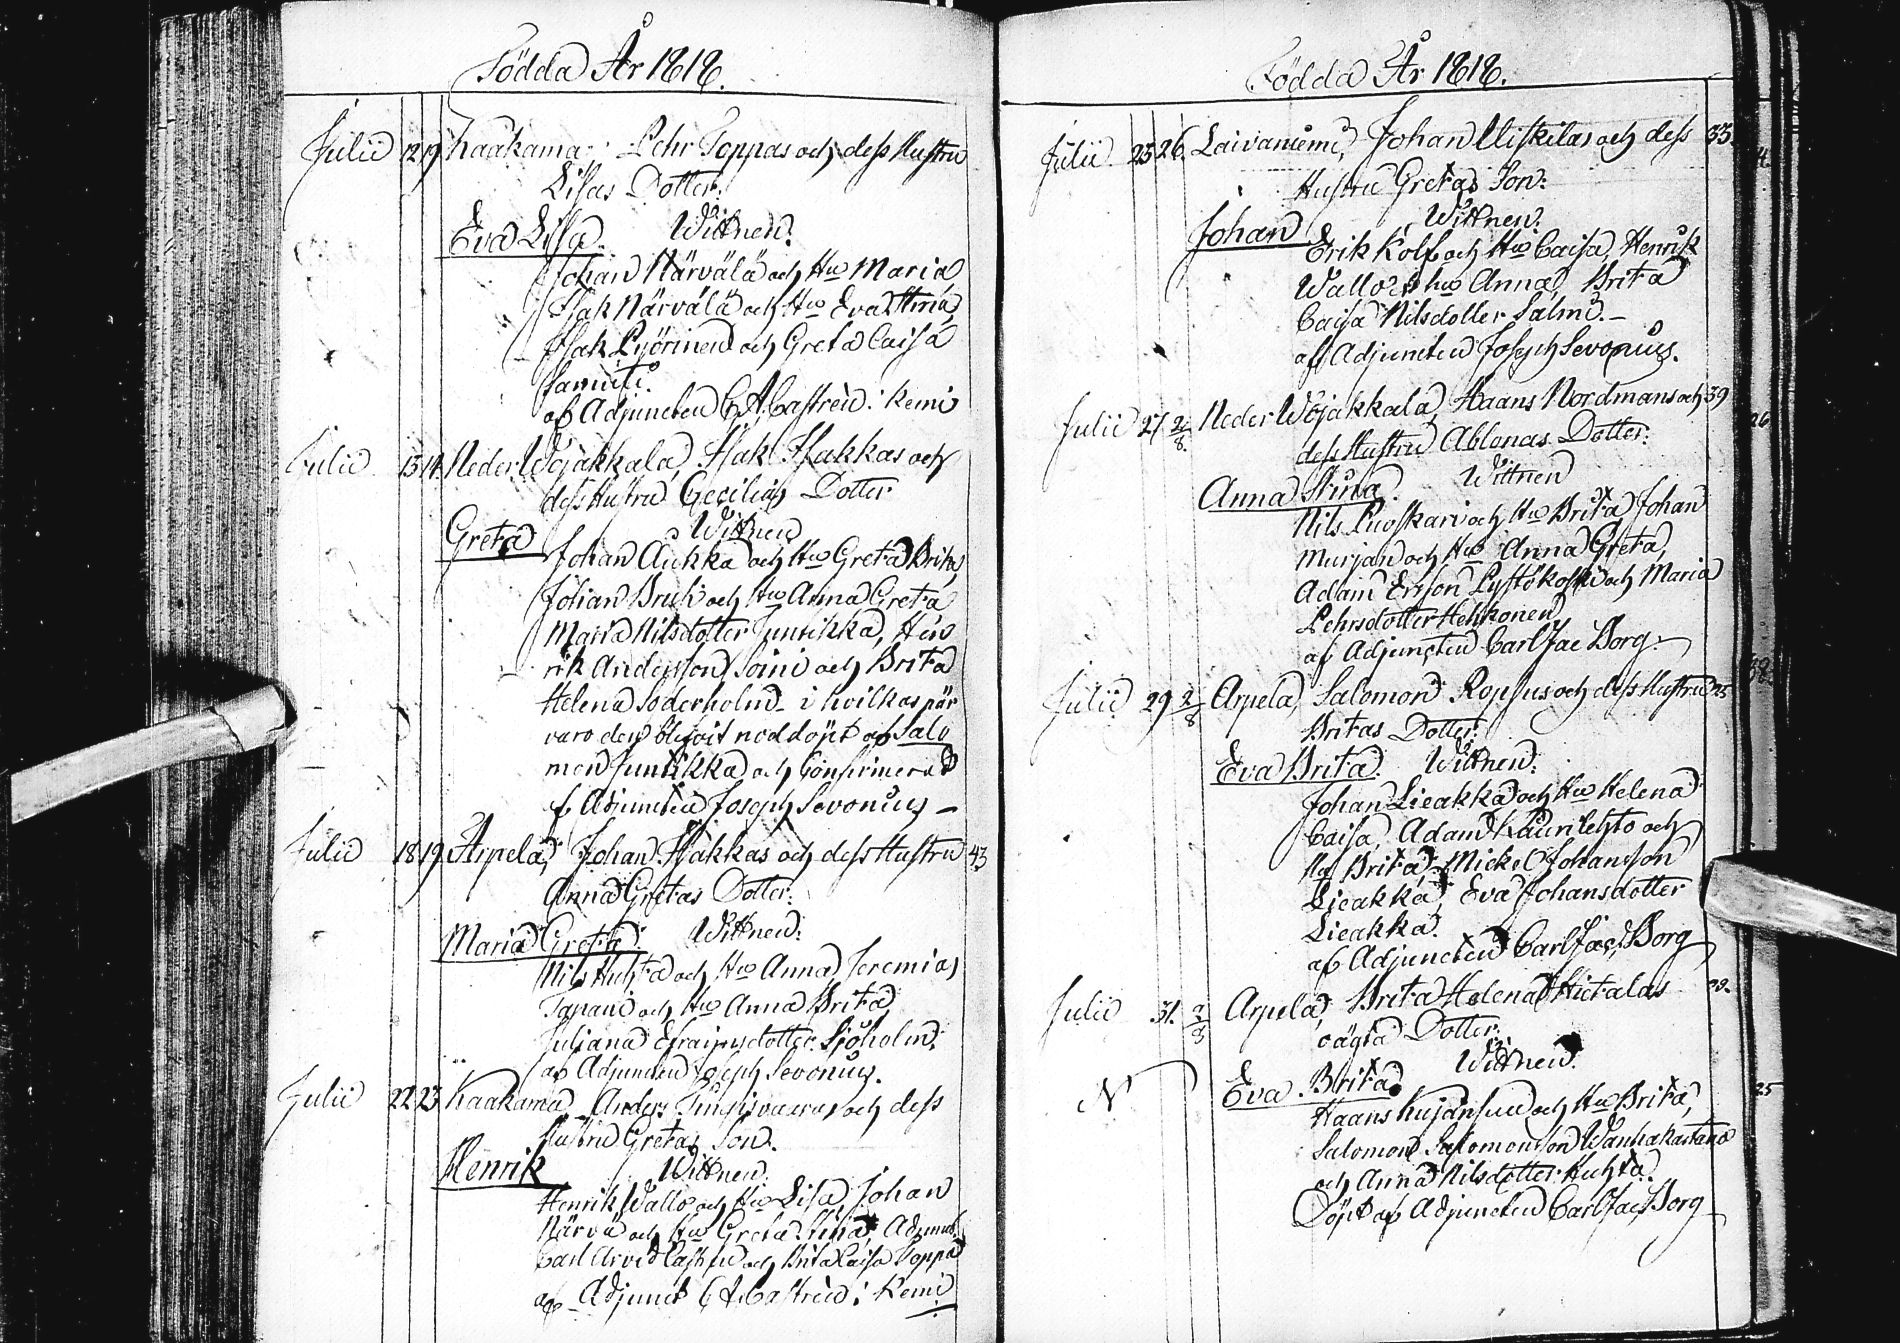 Födda År 1818.
Julii 12 19 Kaakama Pehr Poppas och dess Hustru
Lisas Dotter:
Eva Lisa. Wittnen:
Johan Närvälä och Hu Maria
Isak Närvälä och Hu Eva Stina,
Isak Pyörinen och Greta Caisa
af Adjuncten C. A. Castrén i Kemi
Julii 13 14 Neder Wojakkala, Isak Isakkas och
dess Hustru Cecilias Dotter
Greta Wittnen
Johan Aukka och Hu Greta Brita,
Johan Brusi och Hu Anna Greta
Maria Nilsdotter Juntikka, Hen
rik Andersson Soini och Brita
Helena Söderholm i hvilkas när
varo den blifvit nöddöpt af Salo
mon Juntikka och Confirmerad
af Adjuncten Joseph Sevonius
Julii 18 19 Arpela, Johan Isakkas och dess Hustru 43
Anna Gretas Dotter:
Maria Greta Wittnen:
Nils Huhta och Hu Anna, Jeremias
Tapani och Hu Anna Brita,
Juliana Efraimsdotter Sjöholm.
af Adjuncten Joseph Sevonius.
Julii 22 23 Kaakama Anders och dess
Hustru Gretas Son.
Henrik Wittnen:
Henrik Wallo och Hu Lisa, Johan
Närvä och Hu Greta Stina Adjunct.
Carl Arvid Castrén och Brita Caisa Poppa
af Adjunct C A Castrén i Kemi
Födda År 1818.
Julii 25 26. Laivaniemi, Johan Uiskilas och dess 33
Hustru Gretas Son:
Johan Wittnen:
Erik Kolf och Hu Caisa, Henrik
Wallo och hu Anna, Brita
Caisa Nilsdotter Salmi.
af Adjuncten Joseph Sevonius.
Julii 27 2/8. Neder Wojakkala, Haans Nordmans och 39
dess Hustru Ablonas Dotter:
Anna Stina. Wittnen
Nils Luoskari och Hu Brita Johan
Murjan och Hu Anna Greta,
Adam Ersson Lystökoski och Maria
Pehrsdotter Hekkonen
af Adjuncten Carl Jac Borg.
Julii 29 2/8 Arpela, Salomon Ropsus och dess Hustru 25
Britas Dotter:
Eva Brita. Wittnen:
Johan Lieakka och Hu Helena
Caisa, Adam Kaurilehto och
Hu Brita, Mickel Johansson
Lieakka, Eva Johansdotter
Lieakka.
af Adjuncten Carl Jac. Borg
Julii 31. 2/8 Arpela, Brita Helena Hietalas
oägta Dotter:
N Eva Brita Wittnen:
Haans Kujansuu och Hu Brita,
Salomon Salomonsson Wanhakartano
och Anna Nilsdotter Huhta.
Döpt af Adjuncten Carl Jac. Borg